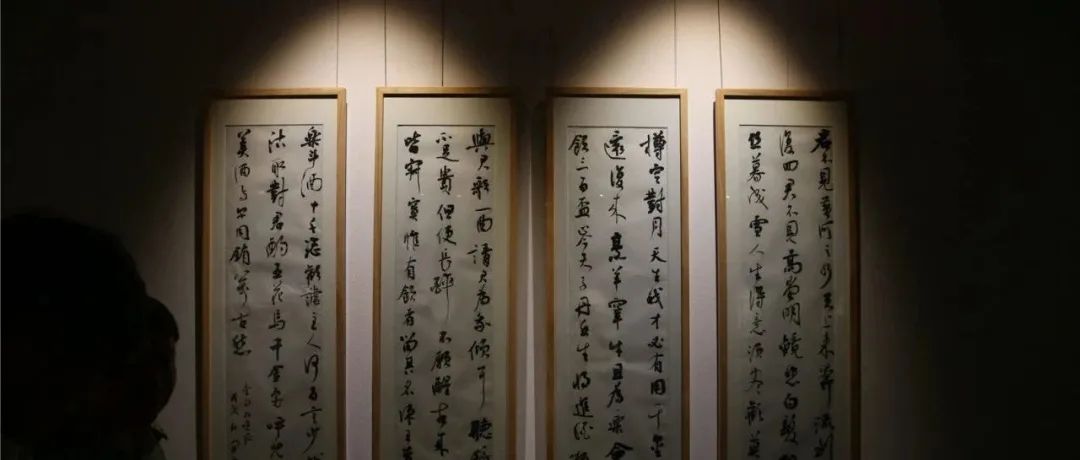 君不見黃河之水天上來奔流到
復回君不見高堂明鏡悲白髮
絲暮成雪人生得意須盡歡莫
樽空對月天生我才必有用千金
還復來烹羊宰牛且為樂會
飲三百盃岑夫子丹丘生將進酒
與君歌一曲請君為我傾耳聽
不足貴但使長醉不願醒古來
皆寂寞惟有飲者留其名陳王
樂斗酒十千恣歡謔主人何為言少
沽取對君酌五花馬千金裘呼兒
美酒與爾同銷萬古愁